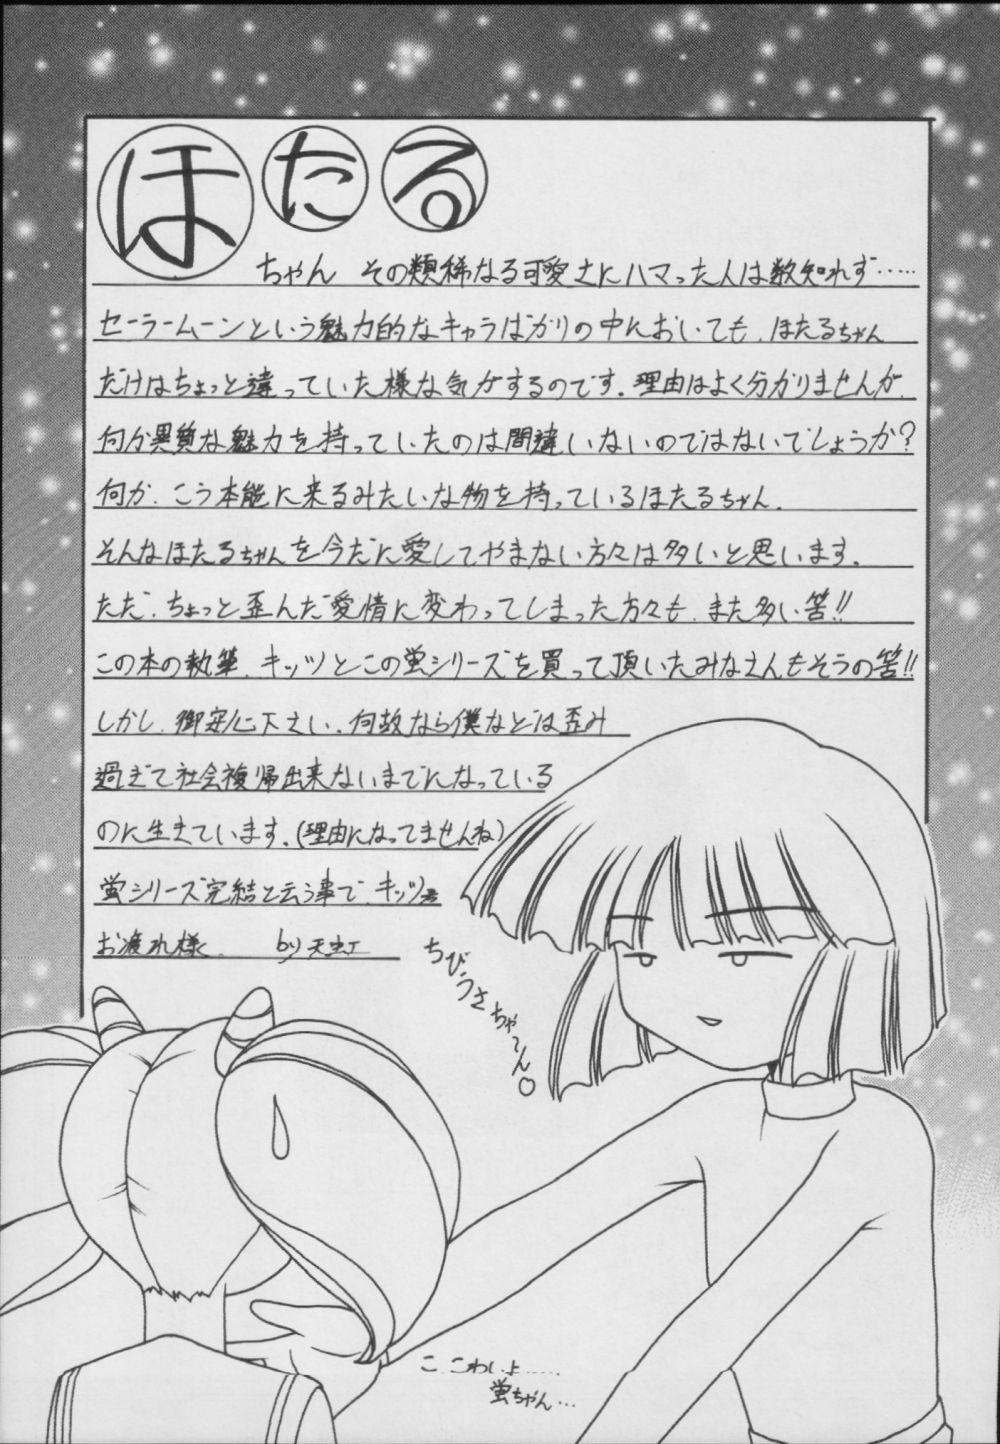 ほたる
ちゃん その類稀なる可愛さにハマった人は数知れず……
セーラームーンという魅力的なキャラばかりの中においても、ほたるちゃん
だけはちょっと違っていた様な気がするのです。理由はよく分かりませんが、
何か異質な魅力を持っていたのは間違いないのではないでしょうか?
何か、こう本能に来るみたいな物を持っているほたるちゃん。
そんなほたるちゃんを今だに愛してやまない方々は多いと思います。
ただ、ちょっと歪んだ愛情に変わってしまった方々も、また多い筈!!
この本の執筆、キッツとこの蛍シリーズを買って頂いたみなさんもそうの筈!!
しかし、御安心下さい、何故なら僕などは歪み
過ぎて社会複帰出来ないまでになっている
のに生きています。(理由になってませんね)
蛍シリーズ完結と云う事で、キッツ
お疲れ様。 by 天虹
ちびうさちゃ〜ん♡
こ、こわいよ……
蛍ちゃん…